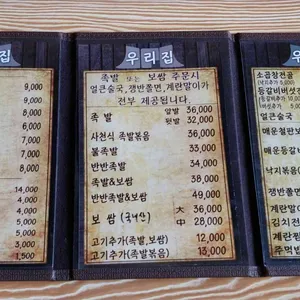 9,000
9,000
9,000
8,000
7,000
14,000
4,000
5,000
3,000
1,500
우리집
족발 또는 보쌈 주문시
얼큰술국, 쟁반쫄면, 계란말이가
전부 제공됩니다.
족 발 앞발 36,000
뒷발 32,000
사천식 족발볶음 36,000
불족발 33,000
반반족발 34,000
족발&보쌈 38,000
반반족발&보쌈 49,000
보 쌈 (국내산) 大 36,000
中 28,000
고기추가(족발,보쌈) 12,000
고기추가(족발볶음) 13,000
우리집
소곱창전골
등갈비버섯전
등갈비버섯
얼큰술국
매운철판
매운등갈비
낙지볶음
계란
김치전
계란찜
주먹밥